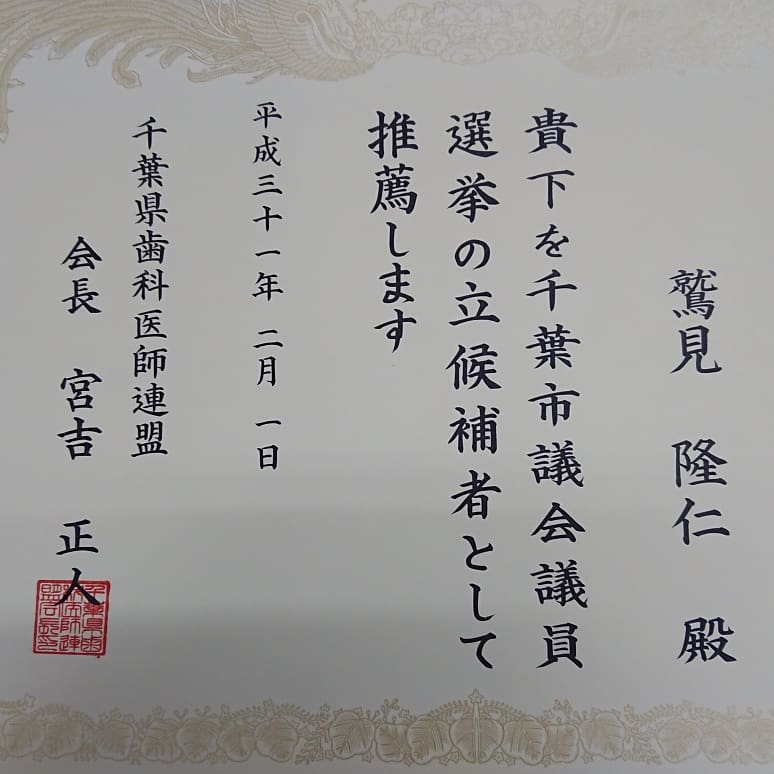 鷲見 隆仁 殿
貴下を千葉市議会議員
選挙の立候補者として
推薦します
平成三十一年 二月 一日
千葉県歯科医師連盟
会長 宮吉 正人